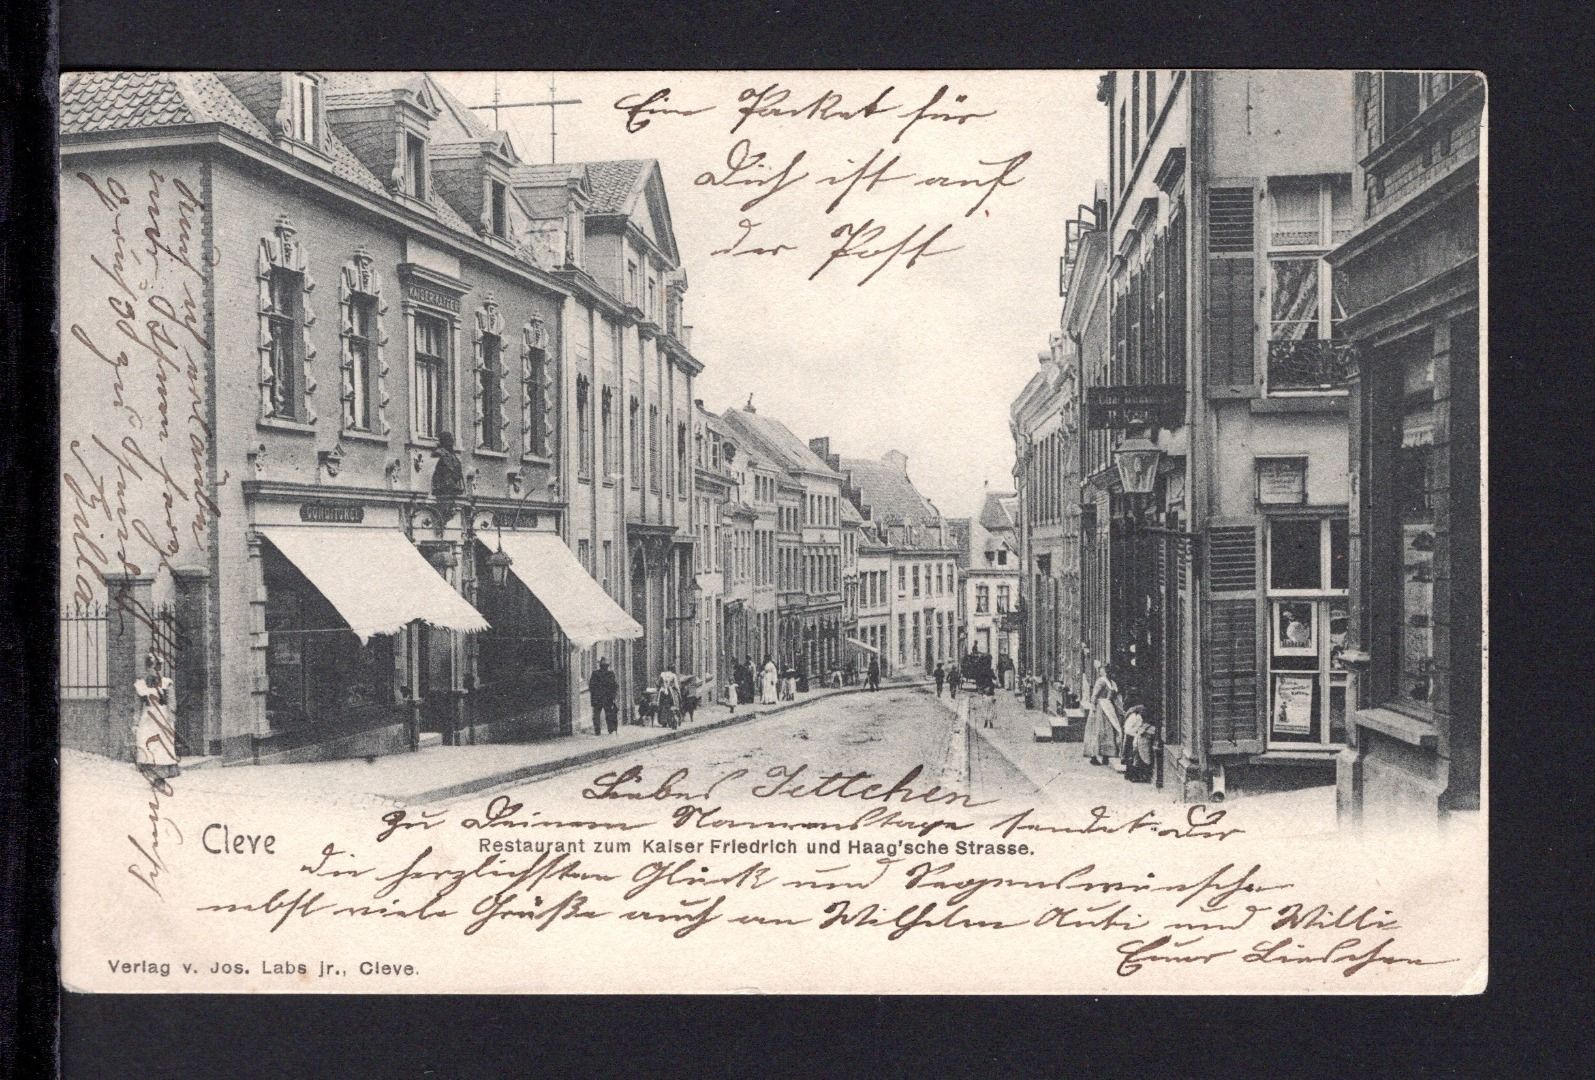 Eine Packet für
Dich ist auf
der Post
KAISERKAFFEE
CONDITOREI
Liebes Jettchen
Zu Deinem Namenstage sendet Dir
Cleve
Restaurant zum Kaiser Friedrich und Haag'sche Strasse.
die herzlichsten Glück und Segenswünsche
nebst viele Grüße auch an Wilhelm Anti und Willi
Euer Lieschen
Verlag v. Jos. Labs jr., Cleve.
Auch ich erlaube
mir Ihnen
zu
Zilla